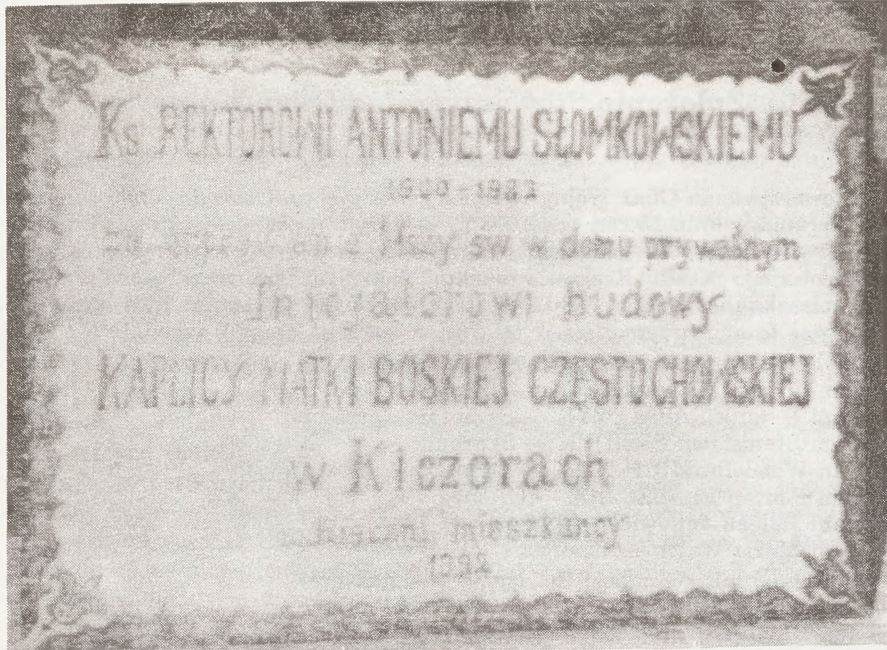 Ks REKTOROWI ANTONIEMU SŁOMKOWSKIEMU
1900-1982
za Mszy sw w domu prywatnym
Inicjatorowi budowy
KAPLICY MATKI BOSKIEJ CZĘSTOCHOWSKIEJ
w Kiczorach
mieszkancy